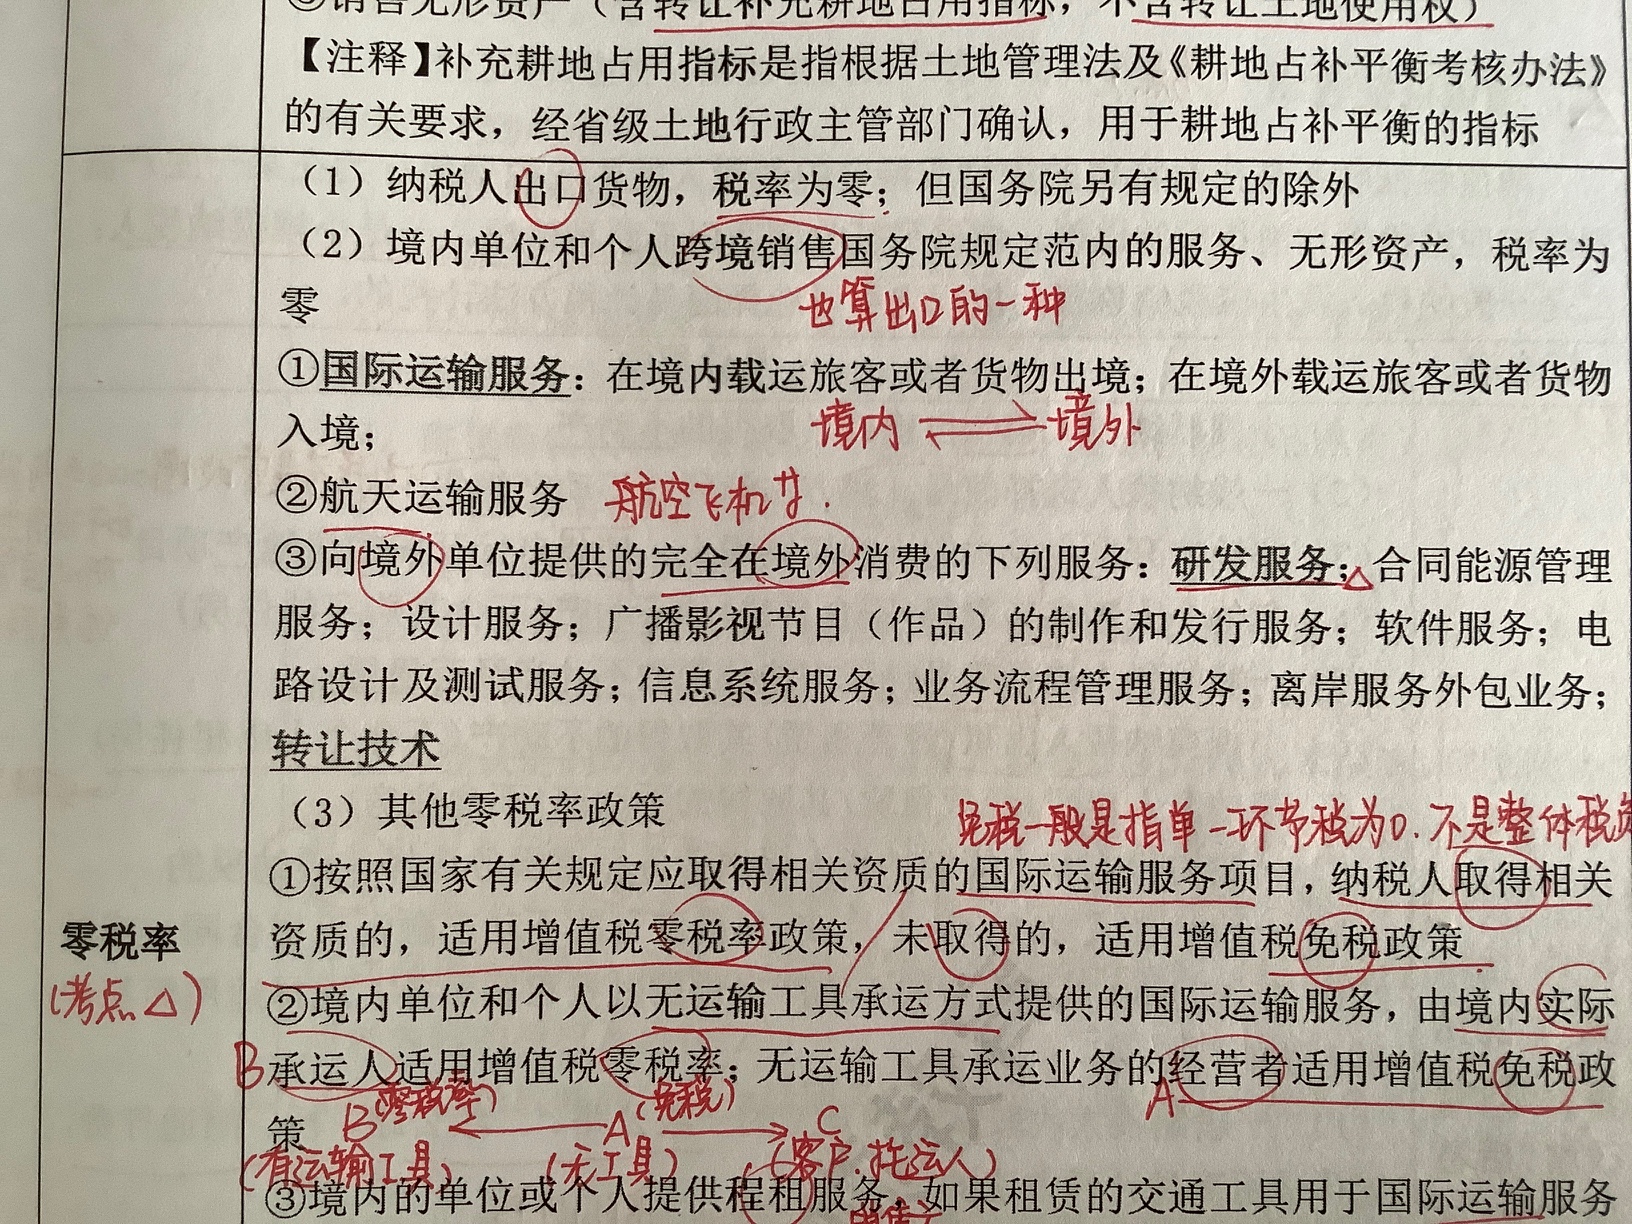 ③销售无形资产（含转让补充耕地占用指标，不含转让土地使用权）
【注释】补充耕地占用指标是指根据土地管理法及《耕地占补平衡考核办法》
的有关要求，经省级土地行政主管部门确认，用于耕地占补平衡的指标
（1）纳税人出口货物，税率为零；但国务院另有规定的除外
（2）境内单位和个人跨境销售国务院规定范内的服务、无形资产，税率为
零
也算出口的一种
①国际运输服务：在境内载运旅客或者货物出境；在境外载运旅客或者货物
入境；
境内 境外
②航天运输服务 航空飞机
③向境外单位提供的完全在境外消费的下列服务：研发服务；合同能源管理
服务；设计服务；广播影视节目（作品）的制作和发行服务；软件服务；电
路设计及测试服务；信息系统服务；业务流程管理服务；离岸服务外包业务；
转让技术
（3）其他零税率政策
免税一般是指单一环节税为0.不是整体税负
①按照国家有关规定应取得相关资质的国际运输服务项目，纳税人取得相关
资质的，适用增值税零税率政策，未取得的，适用增值税免税政策
零税率
(考点△)
②境内单位和个人以无运输工具承运方式提供的国际运输服务，由境内实际
B承运人适用增值税零税率；无运输工具承运业务的经营者适用增值税免税政
(零税率) (免税) A
策 B A C
(有运输工具) (无工具) (客户.托运人)
③境内的单位或个人提供程租服务，如果租赁的交通工具用于国际运输服务